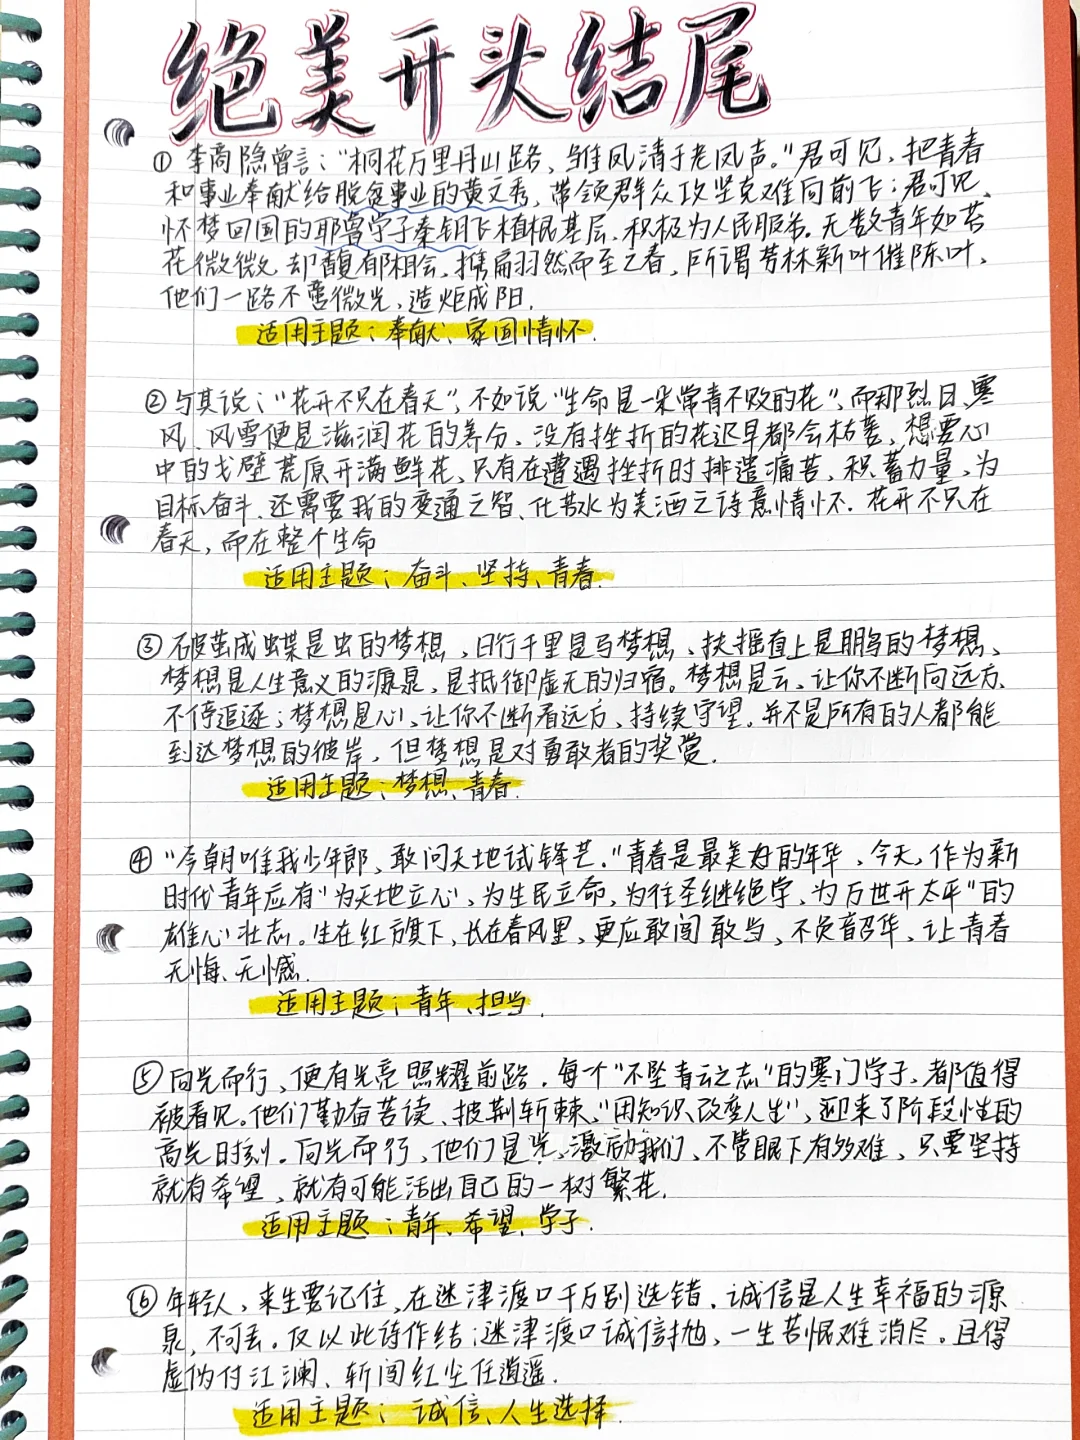 绝美开头结尾
① 李商隐曾言："桐花万里丹山路，雏凤清于老凤声。"君可见，把青春
和事业奉献给脱贫事业的黄文秀，带领群众攻坚克难向前飞；君可见、
怀梦回国的耶鲁学子秦玥飞植根基层、积极为人民服务。无数青年如苔
花微微却馥郁相会，携扁羽然而至之春，所谓芳林新叶催陈叶，
他们一路不啻微光，造炬成阳.
适用主题：奉献、家国情怀.
② 与其说："花开不只在春天"，不如说"生命是一朵常青不败的花"，而那烈日、寒
风、风雪便是滋润花的养分，没有挫折的花迟早都会枯萎，想要心
中的戈壁荒原开满鲜花，只有在遭遇挫折时排遣痛苦，积蓄力量，为
目标奋斗、还需要我的变通之智、化苦水为美酒之诗意情怀. 花开不只在
春天，而在整个生命
适用主题：奋斗、坚持、青春.
③ 破茧成蝶是虫的梦想，日行千里是马梦想、扶摇直上是鹏鸟的梦想、
梦想是人生意义的源泉，是抵御虚无的归宿。梦想是云，让你不断向远方、
不停追逐；梦想是心，让你不断看远方、持续守望。并不是所有的人都能
到达梦想的彼岸，但梦想是对勇敢者的奖赏.
适用主题：梦想、青春.
④ "今朝唯我少年郎，敢问天地试锋芒."青春是最美好的年华，今天，作为新
时代青年应有"为天地立心，为生民立命，为往圣继绝学，为万世开太平"的
雄心壮志。生在红旗下，长在春风里，更应敢闯敢当，不负韶华，让青春
无悔、无憾.
适用主题：青年、担当.
⑤ 向光而行，便有光亮照耀前路. 每个"不坠青云之志"的寒门学子，都值得
被看见。他们勤奋苦读、披荆斩棘，"用知识改变人生"，迎来了阶段性的
高光时刻. 向光而行，他们是光，激励我们，不管眼下有多难，只要坚持
就有希望，就有可能活出自己的一树繁花.
适用主题：青年、希望、学子.
⑥ 年轻人，来生要记住，在迷津渡口千万别选错. 诚信是人生幸福的源
泉，不可丢。仅以此诗作结：迷津渡口诚信抛，一生苦恨难消尽。且得
虚伪付江澜、斩闯红尘任逍遥.
适用主题：诚信、人生选择.